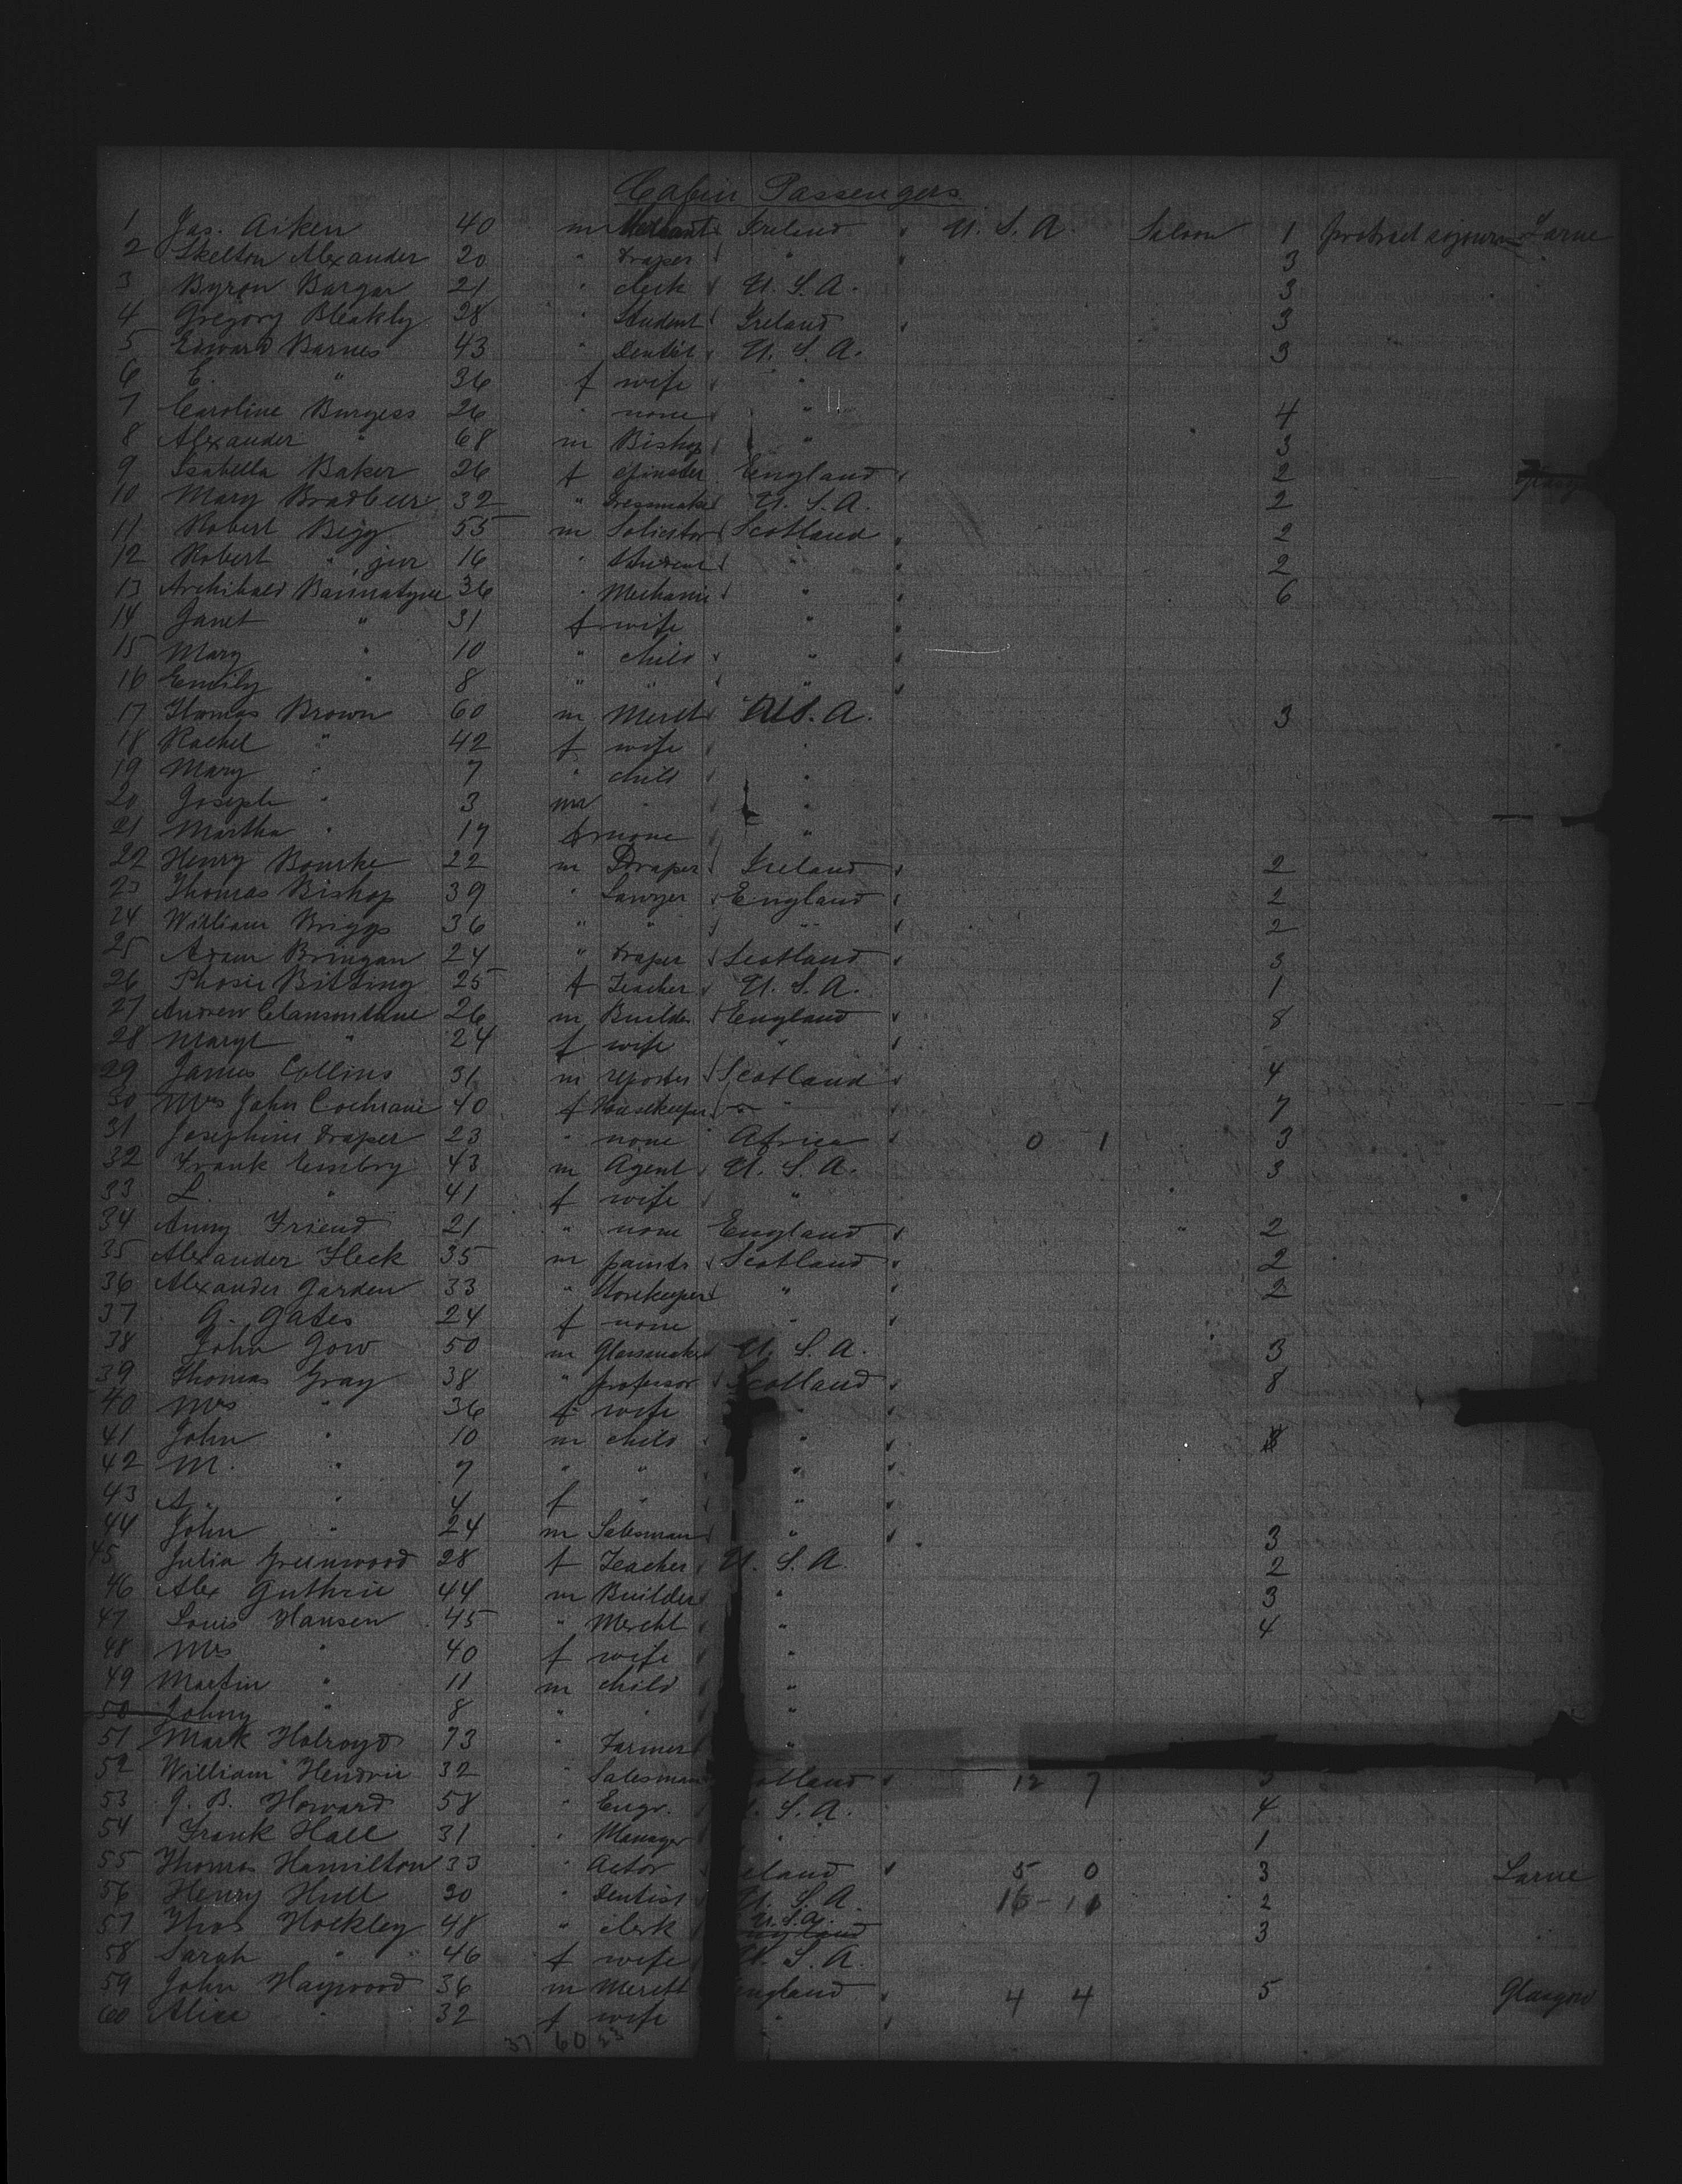 Cabin Passengers
1 Jas. Aiken 40 m Merchant Ireland U. S. A. Saloon 1 protract sojourn Larne
2 Skelton Alexander 20 " Draper " 3
3 Byron Bargar 21 " clerk U. S. A. 3
4 Gregory Bleakly 28 " Student Ireland 3
5 Edward Barnes 43 " Dentist U. S. A. 3
6 E. " 36 f wife "
7 Caroline Burgess 26 " none " 4
8 Alexander " 68 m Bishop " 3
9 Isabella Baker 26 f spinster England 2
10 Mary 32 " Dressmaker U. S. A. 2
11 Robert Bigg 55 m Solicitor Scotland 2
12 Robert " , jur 16 " Student " 2
13 Archibald Bannatyne 36 " Mechanic " 6
14 Janet " 31 f wife "
15 Mary " 10 " child "
16 Emily " 8 " " "
17 Thomas Brown 60 m Mercht U.S. A. 3
18 Rachel " 42 f wife "
19 Mary " 7 " child "
20 Joseph " 3 m " "
21 Martha " 17 f none "
22 Henry Bourke 22 m Draper Ireland 2
23 Thomas Bishop 39 " Lawyer England 2
24 William Briggs 36 " " " 2
25 Adam Bringan 24 " Draper Scotland 3
26 Bitting 25 f Teacher U. S. A. 1
27 Andrew 26 m Builder England 8
28 Mary " 24 f wife "
29 James Collins 31 m reporter Scotland 4
30 Mrs John Cochrane 40 f Housekeeper " 7
31 Josephine Draper 23 " none Africa 0 1 3
32 Frank Embry 43 m Agent U. S. A. 3
33 L. " 41 f wife "
34 Anny Friend 21 " none England " 2
35 Alexander Fleck 35 m painter Scotland 2
36 Alexander Garden 33 " Storekeeper " 2
37 A. Gates 24 f none "
38 John Gow 50 m Glassmaker U. S. A. 3
39 Thomas Gray 38 " professor Scotland 8
40 Mrs " 36 f wife "
41 John " 10 m child "
42 M. " 7 " " "
43 A. " 4 f " "
44 John " 24 m Salesman " 3
45 Julia Greenwood 28 f Teacher U. S. A. 2
46 Alex Guthrie 44 m Builder " 3
47 Louis Hansen 45 " Mercht " 4
48 Mrs " 40 f wife "
49 Martin " 11 m child "
50 Johny " 8 " " "
51 Mark Holroyd 73 " Farmer "
52 William Hendrie 32 " Salesman otland 12 7
53 G. B. Howard 58 " Engr. S. A. 4
54 Frank Hall 31 " Manager " 1
55 Thomas Hamilton 33 " Actor eland 5 0 3 Larne
56 Henry Hull 30 " Dentist U. S. A. 16 - 11 2
57 Thos Hockley 48 " clerk U.S.A. 3
58 Sarah " 46 f wife U. S. A.
59 John Haywood 36 m Mercht England 4 4 5 Glasgow
60 Alice " 32 f wife "
37 60 23